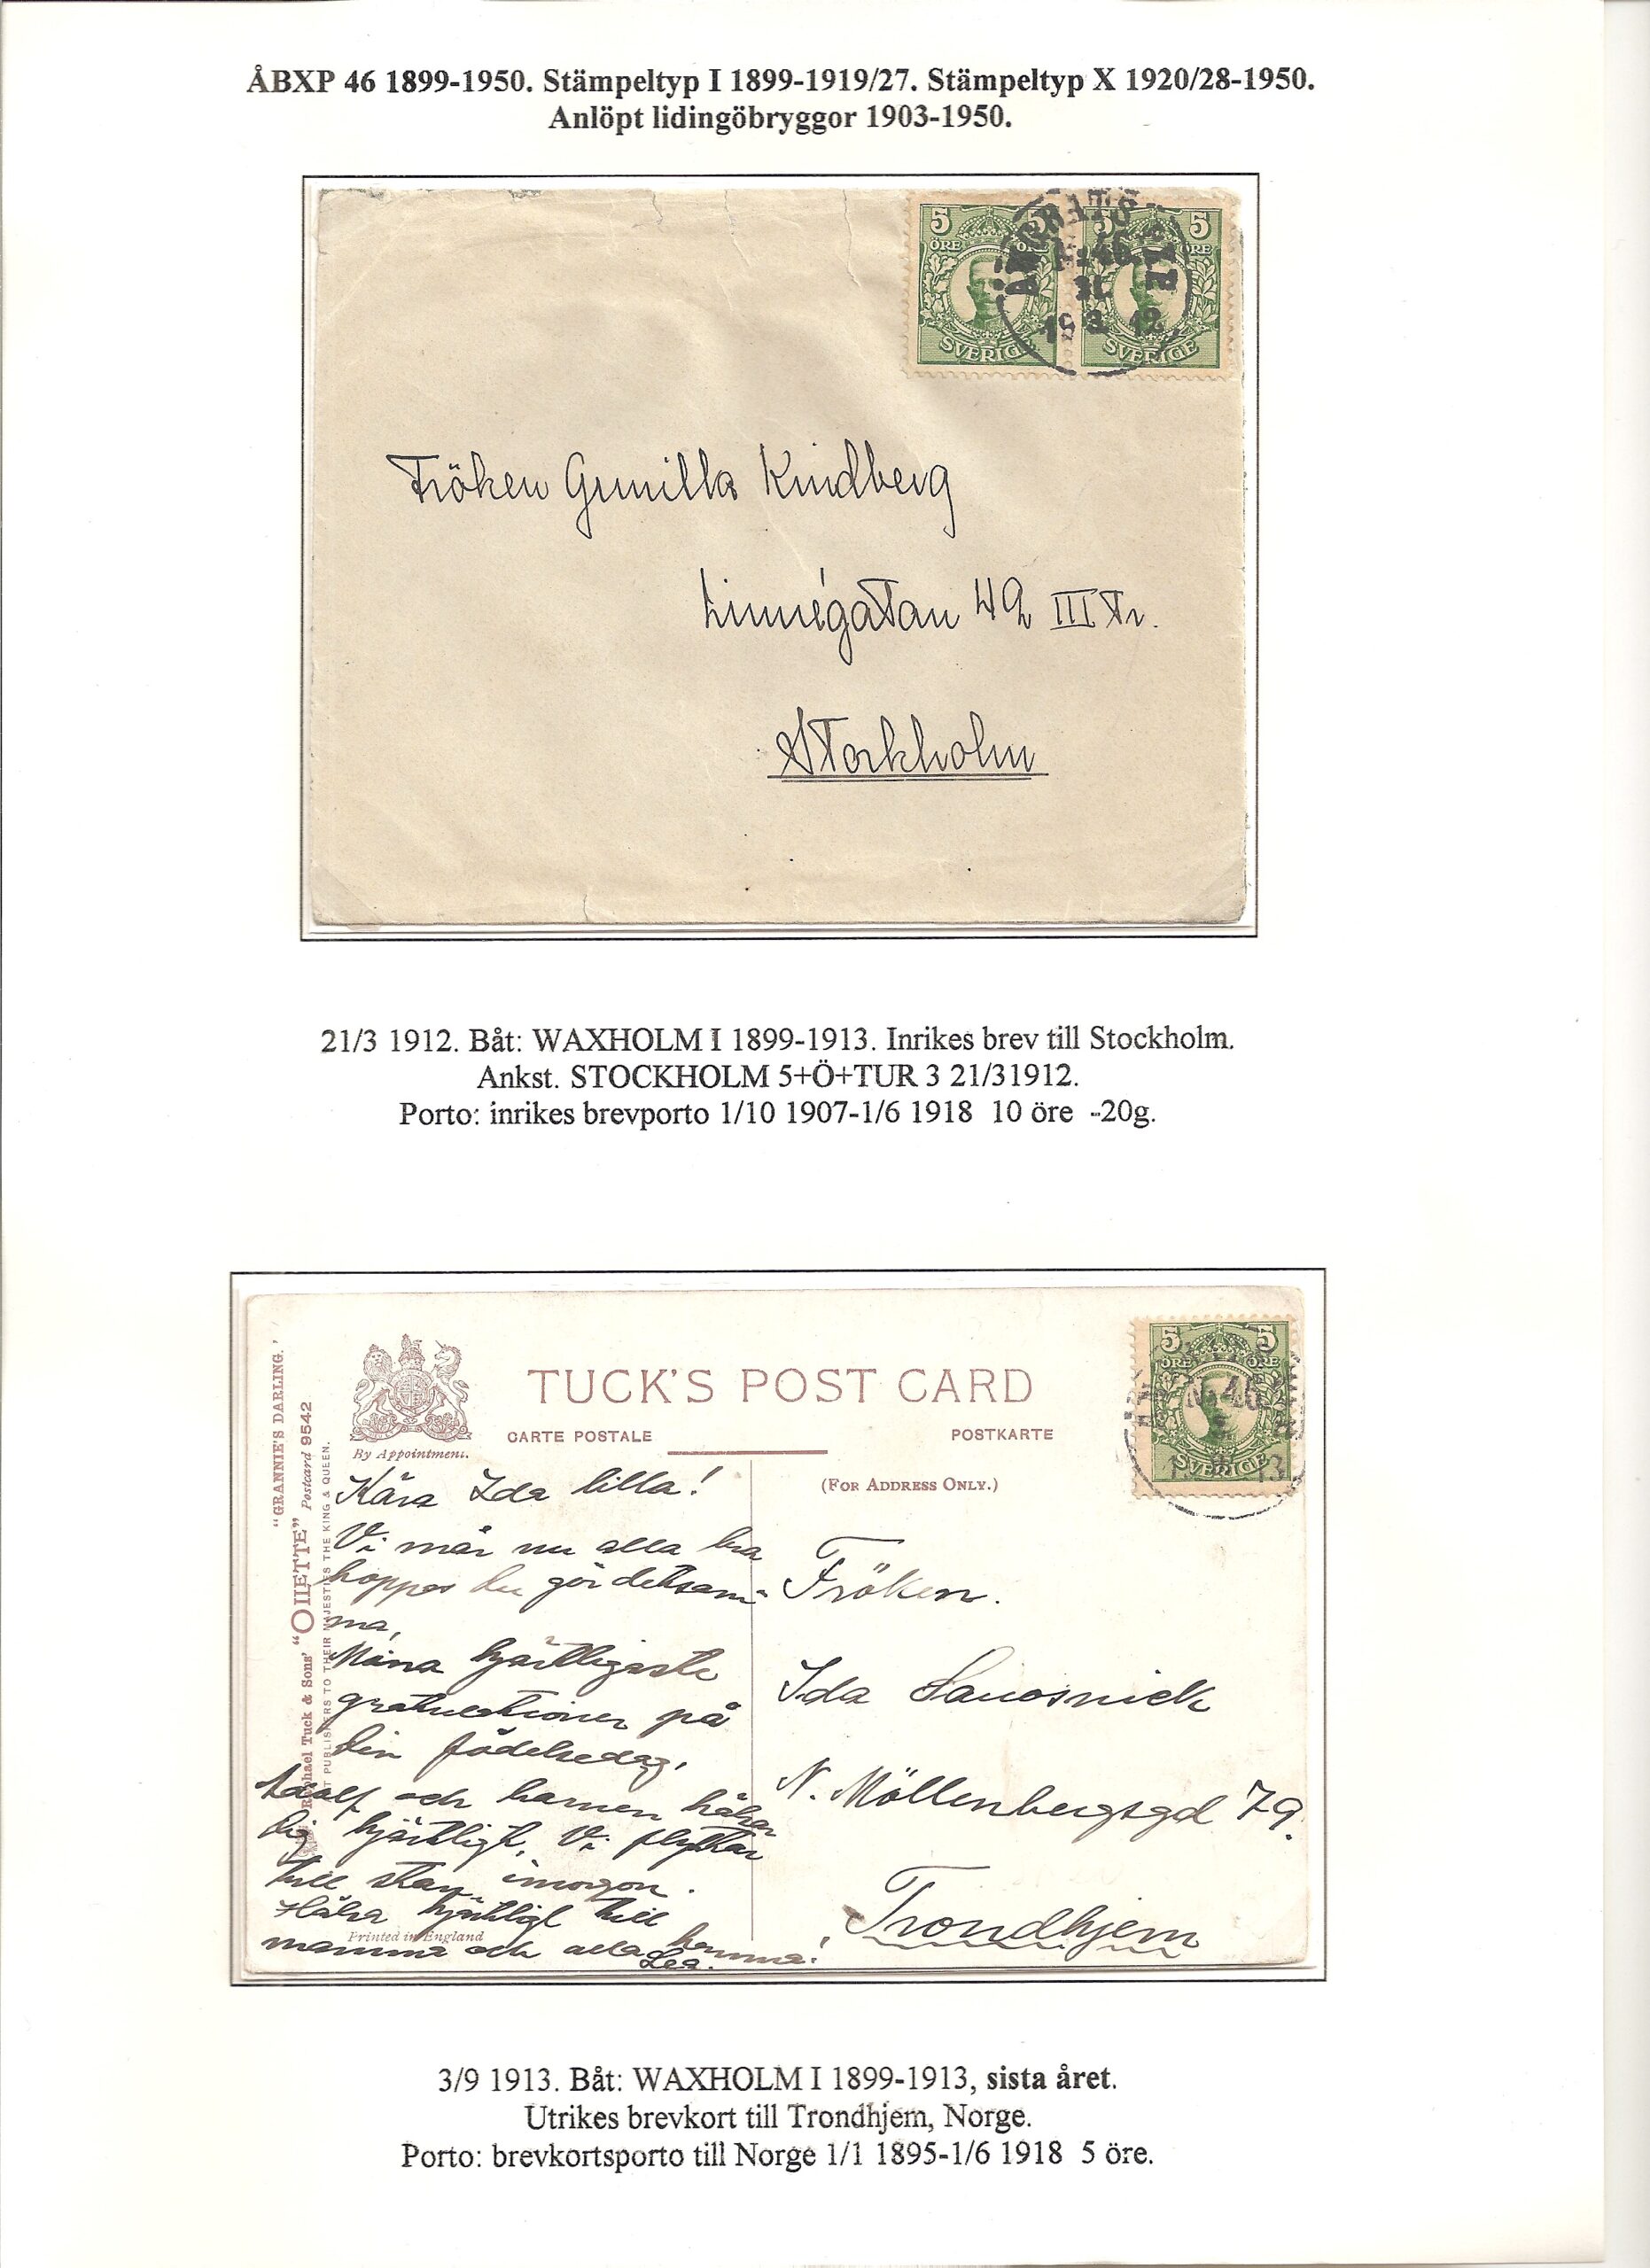 ÅBXP 46 1899-1950. Stämpeltyp I 1899-1919/27. Stämpeltyp X 1920/28-1950.
Anlöpt lidingöbryggor 1903-1950.
5 5 5 5
ÖRE ÖRE ÖRE
No 46.
21
19 3 12
SVERIGE SVERIGE
Fröken Gunilla Kindberg
Linnégatan 42 III Tr.
Stockholm
21/3 1912. Båt: WAXHOLM I 1899-1913. Inrikes brev till Stockholm.
Ankst. STOCKHOLM 5+Ö+TUR 3 21/31912.
Porto: inrikes brevporto 1/10 1907-1/6 1918 10 öre -20g.
"GRANNIE'S DARLING."
Raphael Tuck & Sons' "OILETTE" Postcard 9542
PUBLISHERS TO THEIR MAJESTIES THE KING & QUEEN.
By Appointment.
TUCK'S POST CARD
CARTE POSTALE
POSTKARTE
(FOR ADDRESS ONLY.)
5 5
ÖRE ÖRE
No 46
SVERIGE
13
Kära Ida lilla!
Vi mår nu alla bra
hoppas du gör detsam-
ma,
Mina hjärtligaste
gratulationer på
din födelsedag.
Adolf och barnen hälsar
dig hjärtligt. Vi flyttar
till stan imorgon.
Hälsa hjärtligt till
mamma och alla hemma!
Lea.
Printed in England
Fröken.
Ida
N. Möllenbergsgd 79.
Trondhjem
3/9 1913. Båt: WAXHOLM I 1899-1913, sista året.
Utrikes brevkort till Trondhjem, Norge.
Porto: brevkortsporto till Norge 1/1 1895-1/6 1918 5 öre.